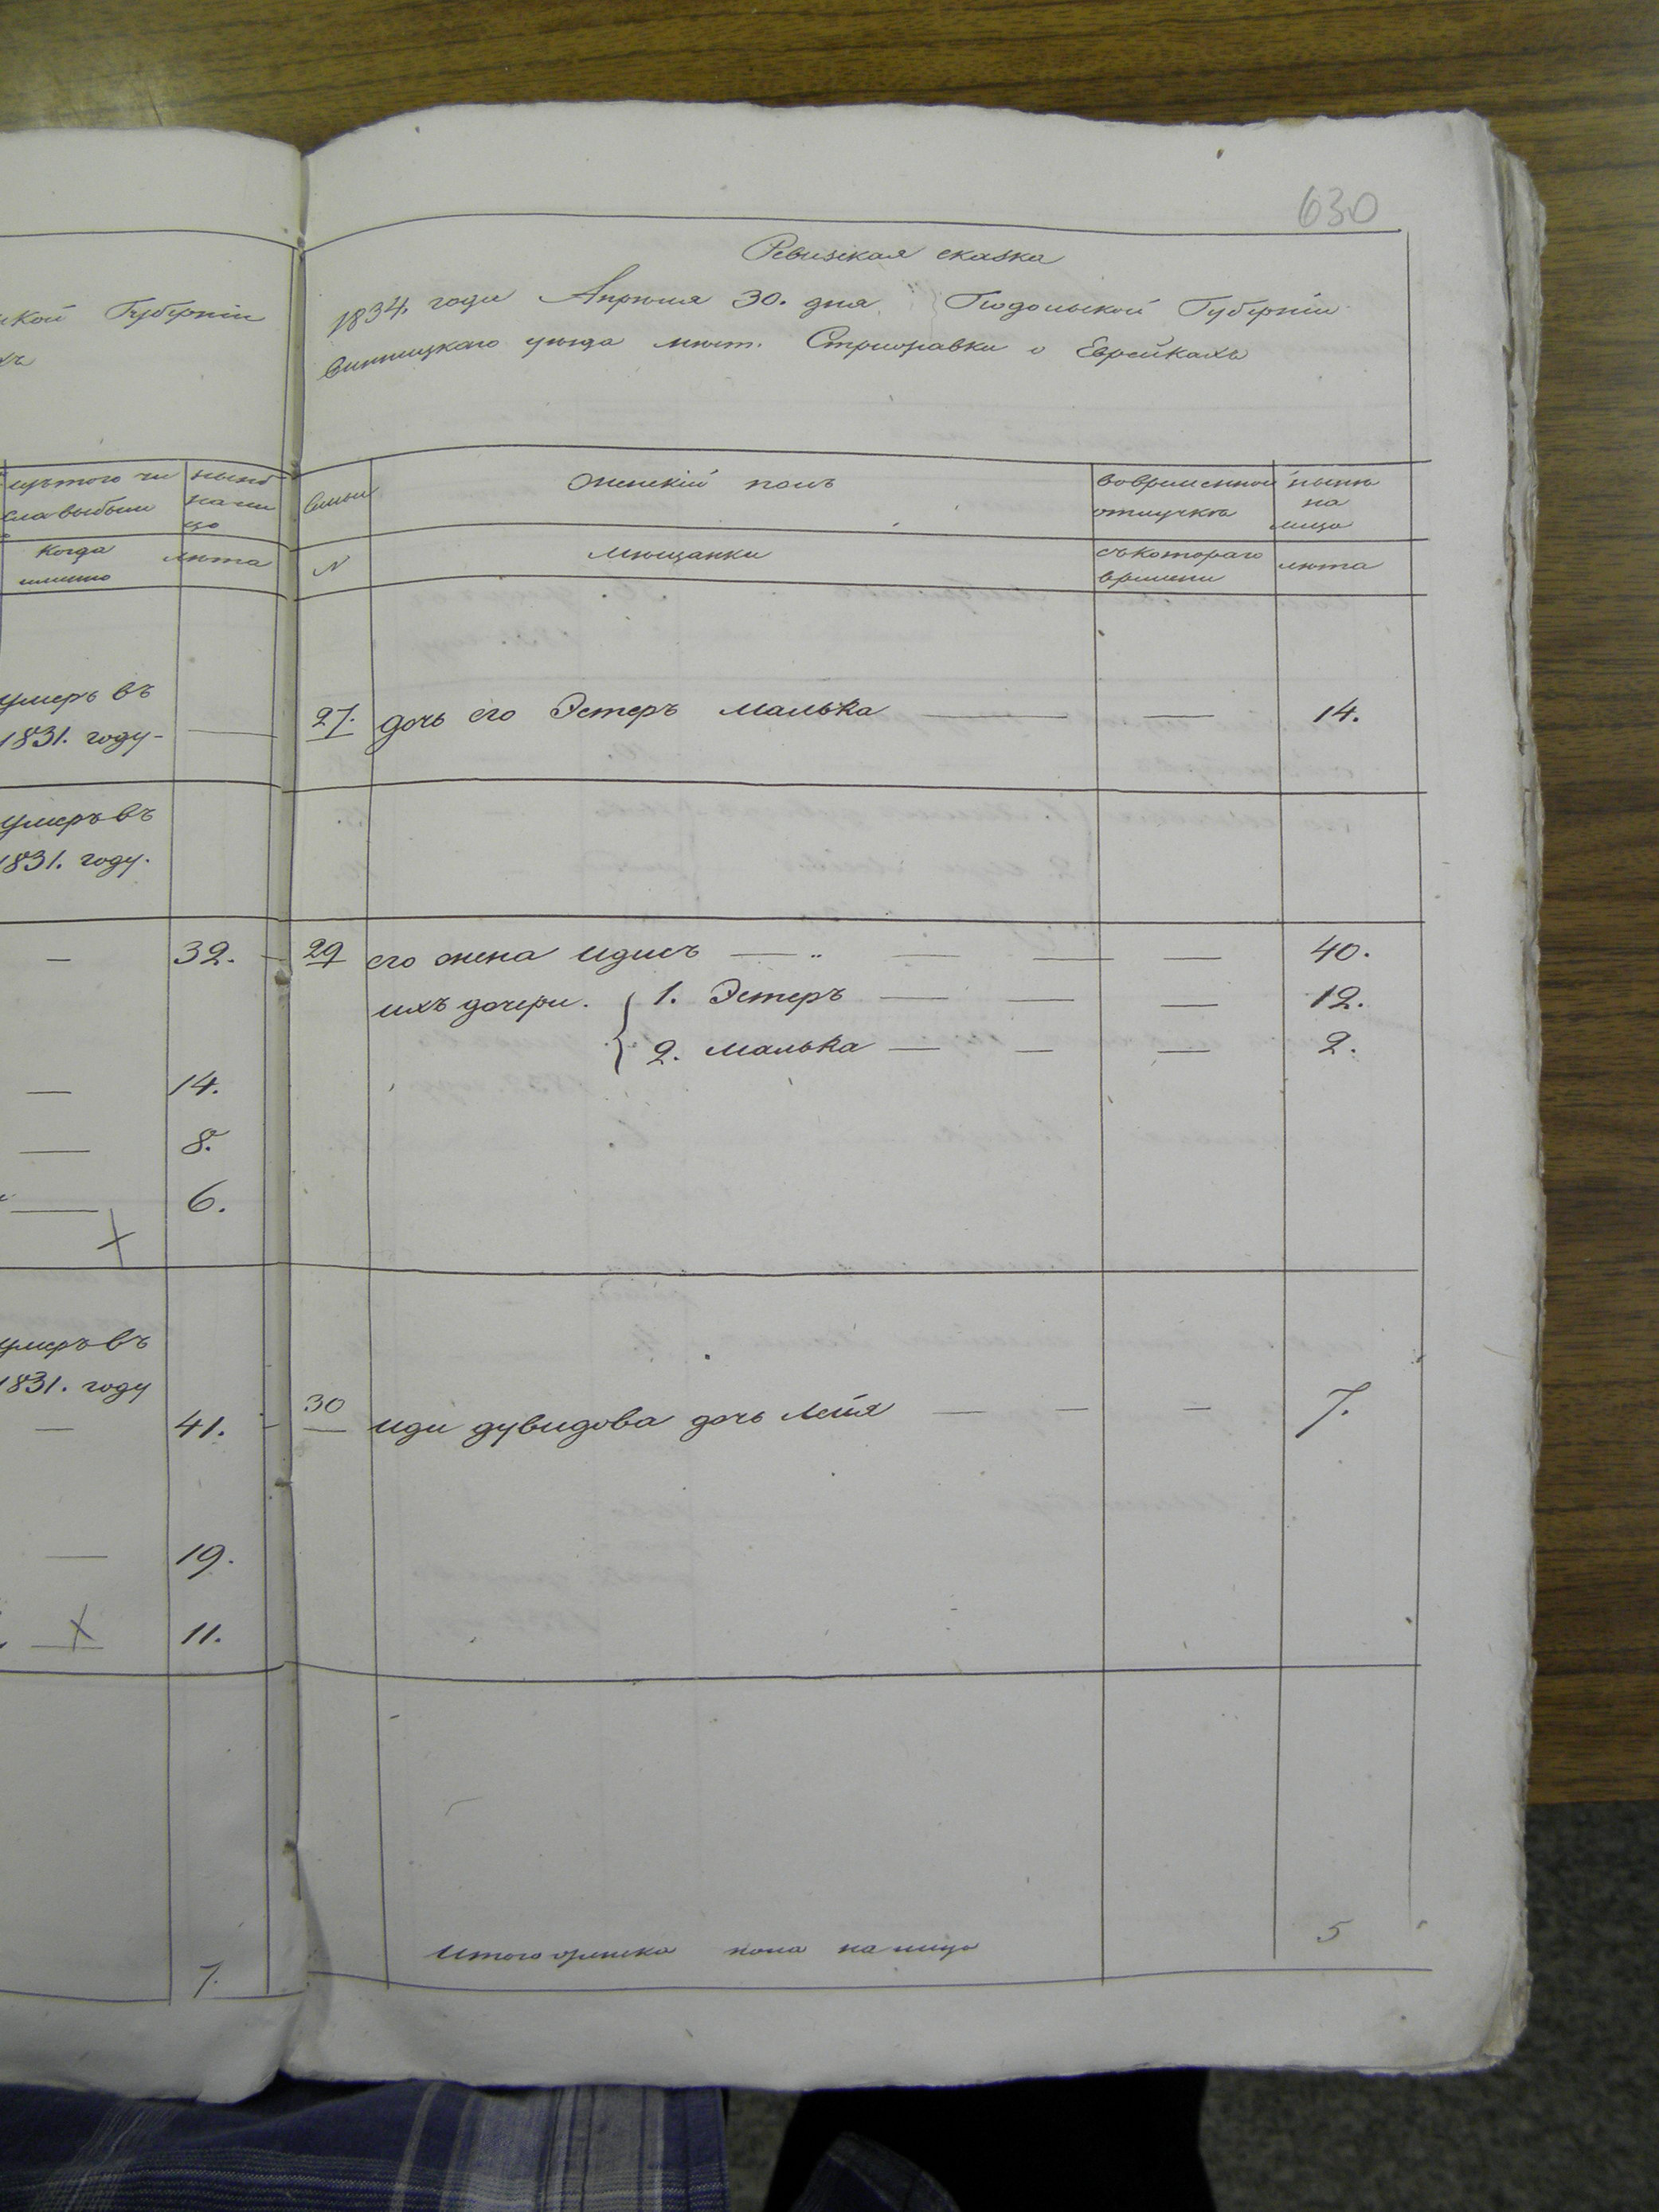 630
кой Губерніи
хъ
изътого чи
сла выбыли
когда
имянно
нынѣ
на ли
цо
лѣта
умеръ въ
1831. году
умеръ въ
1831. году.
32.
14.
8.
6.
умеръ въ
1831. году
41.
19.
11.
7.
Ревизская сказка
1834. года Апрѣля 30. дня Подольской Губерніи
Винницкаго уѣзда мѣст. Стрижавки о Еврейкахъ
Семьи Женскій полъ вовременной нынѣ
отлучкѣ на
лицо
N Мѣщанки съкотораго лѣта
времени
27. дочь его Эстеръ Малька 14.
29 его жена Идись 40.
ихъ дочери. 1. Эстеръ 12.
2. Малька 2.
30 Иди дувидова дочь Лейя 7.
Итого женска пола на лицо 5